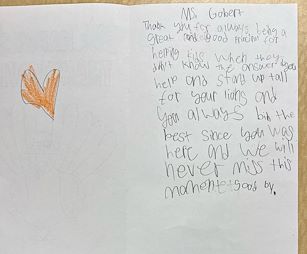 Ms. Gobert
Thank you for always being a
great and good for
helping kids when they
didn't know the answer
help and stand up tall
for your lions and
you always bin the
best since you was
here and we will
never miss this
moment good by.